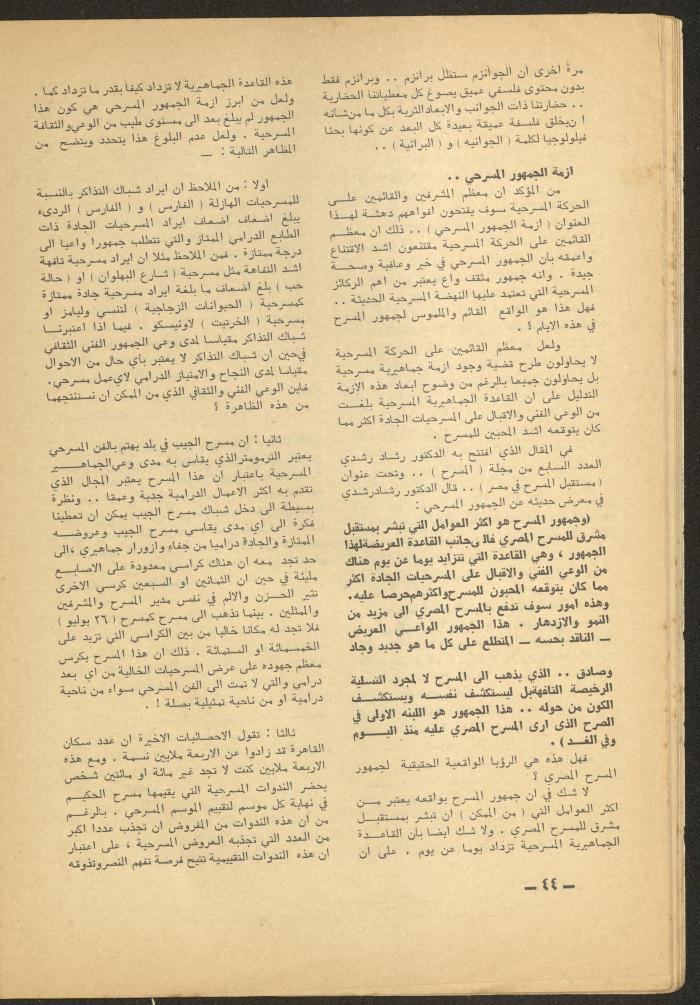 مرة اخرى ان الجوانزم ستظل برانزم .. وبرانزم فقط
بدون محتوى فلسفي عميق يصوغ كل معطياتنا الحضارية
.. حضارتنا ذات الجوانب والابعادالثرية بكل ما منشأنه
ا نيخلق فلسفة عميقة بعيدة كل البعد عن كونها بحثا
فيلولوجيا لكلمة ( الجوانيه ) و ( البرانية ) ..
ازمة الجمهور المسرحي ..
من المؤكد ان معظم المشرفين والقائمين علـى
الحركة المسرحية سوف يفتحون افواههم دهشة لهـذا
العنوان ( ازمة الجمهور المسرحي ) .. ذلك ان معظـم
القائمين على الحركة المسرحية مقتنعون اشد الاقتناع
واعمقه بأن الجمهور المسرحي في خير وعافية وصحــة
جيدة . وانه جمهور مثقف واع يعتبر من اهم الركائز
المسرحية التي تعتمد عليها النهضة المسرحية الحديثة ..
فهل هذا هو الواقع القائم والملموس لجمهور المسرح
في هذه الايام ؟ .
ولعل معظم القائمين على الحركة المسرحية
لا يحاولون طرح قضية وجود ازمة جماهيرية مسرحية
بل يحاولون جميعا بالرغم من وضوح ابعاد هذه الازمة
التدليل على ان القاعدة الجماهيرية المسرحية بلغـت
من الوعي الفني والاقبال على المسرحيات الجادة اكثر مما
كان يتوقعه اشد المحبين للمسرح .
في المقال الذي افتتح به الدكتور رشاد رشدي
العدد السابع من مجلة ( المسرح ) .. وتحت عنوان
( مستقبل المسرح في مصر ) .. قال الدكتور رشادرشدي
في معرض حديثه عن الجمهور المسرحي :
(وجمهور المسرح هو اكثر العوامل التي تبشر بمستقبل
مشرق للمسرح المصري فالىجانب القاعدة العريضةلهذا
الجمهور ، وهي القاعدة التي تتزايد يوما عن يوم هناك
من الوعي الفني والاقبال على المسرحيات الجادة اكثر
مما كان يتوقعه المحبون للمسرحواكثرهمحرصا عليه.
وهذه امور سوف تدفع بالمسرح المصري الى مزيد من
النمو والازدهار . هذا الجمهور الواعـي العريض
ــ الناقد بحسه ــ المتطلع على كل ما هو جديد وجاد
وصادق .. الذي يذهب الى المسرح لا لمجرد التسلية
الرخيصة التافهةبل ليستكشف نفسـه ويستكشـف
الكون من حوله .. هذا الجمهور هو اللبنه الاولى في
الصرح الذى ارى المسرح المصري عليه منذ اليـوم
وفي الغـد ) .
فهل هذه هي الرؤيا الواقعية الحقيقية لجمهور
المسرح المصري ؟
لا شك في ان جمهور المسرح بواقعه يعتبر مــن
اكثر العوامل التي ( من الممكن ) ان تبشر بمستقبـل
مشرق للمسرح المصري . ولا شـك ايضا بأن القاعـدة
الجماهيرية المسرحية تزداد يوما عن يوم . على ان
هذه القاعدة الجماهيرية لا تزداد كيفا بقدر ما تزداد كما .
ولعل من ابرز ازمة الجمهور المسرحي هي كون هذا
الجمهور لم يبلغ بعد الى مستوى طيب من الوعيوالثقافة
المسرحية . ولعل عدم البلوغ هذا يتحدد ويتضح من
المظاهر التالية : ــ
اولا : من الملاحظ ان ايراد شباك التذاكر بالنسبة
للمسرحيات الهازلة ( الفارس ) و ( الفارس ) الردىء
يبلغ اضعاف اضعاف ايراد المسرحيات الجادة ذات
الطابع الدرامي الممتاز والتي تتطلب جمهورا واعيا الى
درجة ممتازة . فمن الملاحظ مثلا ان ايراد مسرحية تافهة
اشد التفاهة مثل مسرحية ( شارع البهلوان ) او ( حالة
حب ) بلغ اضعاف ما بلغة ايراد مسرحية جادة ممتازة
كمسرحية ( الحيوانات الزجاجية ) لتنسي وليامز او
مسرحية ( الخرتيت ) لاونيسكو . فيما اذا اعتبرنــا
شباك التذاكر مقياسا لمدى وعي الجمهور الفني الثقافي
فيحين ان شباك التذاكر لا يعتبر بأي حال من الاحوال
مقياسا لمدى النجاح والامتياز الدرامي لايعمل مسرحي.
فاين الوعي الفني والثقافي الذي من الممكن ان نستنتجهما
من هذه الظاهرة ؟
ثانيا : ان مسرح الجيب في بلد يهتم بالفن المسرحي
يعتبر الترمومترالذي يقاس به مدى وعيالجماهــير
المسرحية باعتبار ان هذا المسرح يعتبر المجال الذي
تقدم به اكثر الاعمال الدرامية جدية وعمقا .. ونظرة
بسيطة الى دخل شباك مسرح الجيب يمكن ان تعطينا
فكرة الى اي مدى يقاسي مسرح الجيب وعروضــه
الممتازة والجادة دراميا من جفاء وأزورار جماهيري ،الى
حد تجد معه ان هناك كراسي معدودة على الاصابـع
مليئة في حين ان الثمانين او السبعين كرسي الاخرى
تثير الحـزن والالم في نفس مدير المسرح والمشرفين
والممثلين . بينما تذهب الى مسرح كمسرح ( ٢٦ يوليو )
فلا تجد له مكانا خاليا من بين الكراسي التي تزيد على
الخمسمائة او الستمائة . ذلك ان هذا المسرح يكرس
معظم جهوده على عرض المسرحيات الخالية من اي بعد
درامي والتي لا تمت الى الفن المسرحي سواء من ناحية
درامية او من ناحية تمثيلية بصلة ! .
ثالثا : تقول الاحصائيات الاخيرة ان عدد سكان
القاهرة قد زادوا عن الاربعة ملايين نسمة . ومع هذه
الاربعة ملايين كنت لا تجد غير مائة او مائتين شخص
يحضر الندوات المسرحية التي يقيمها مسرح الحكيـم
في نهاية كل موسم لتقييم الموسم المسرحي . بالرغـم
من ان هذه الندوات من المفروض ان تجذب عددا اكبر
من العدد التي تجذبه العروض المسرحية ، على اعتبار
ان هذه الندوات التقييمية تتيح فرصة تفهم النصروتذوقه
ــ ٤٤ ــ